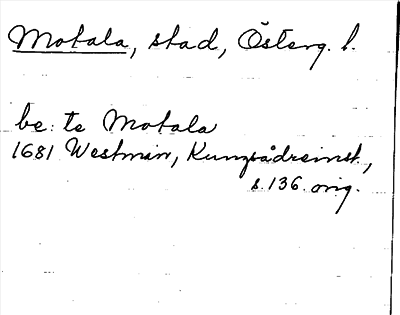 Motala, stad, Österg. l.
be: te Motala
1681 Westman, Kungsådreinst.,
s. 136. orig.